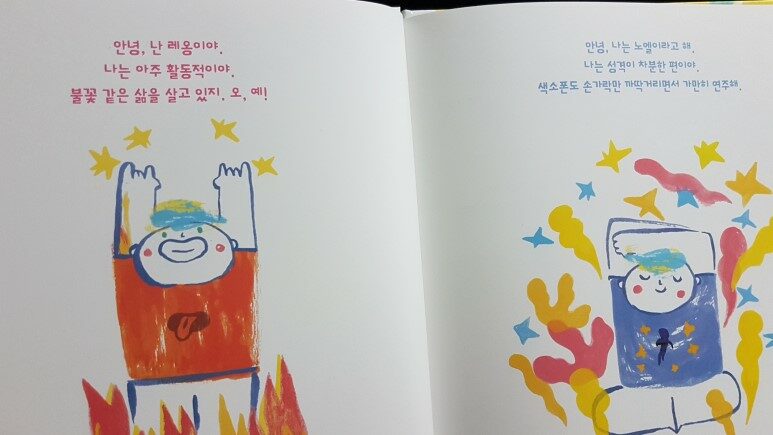 안녕, 난 레옹이야.
나는 아주 활동적이야.
불꽃 같은 삶을 살고 있지. 오, 예!
안녕, 나는 노엘이라고 해.
나는 성격이 차분한 편이야.
색소폰도 손가락만 까딱거리면서 가만히 연주해.